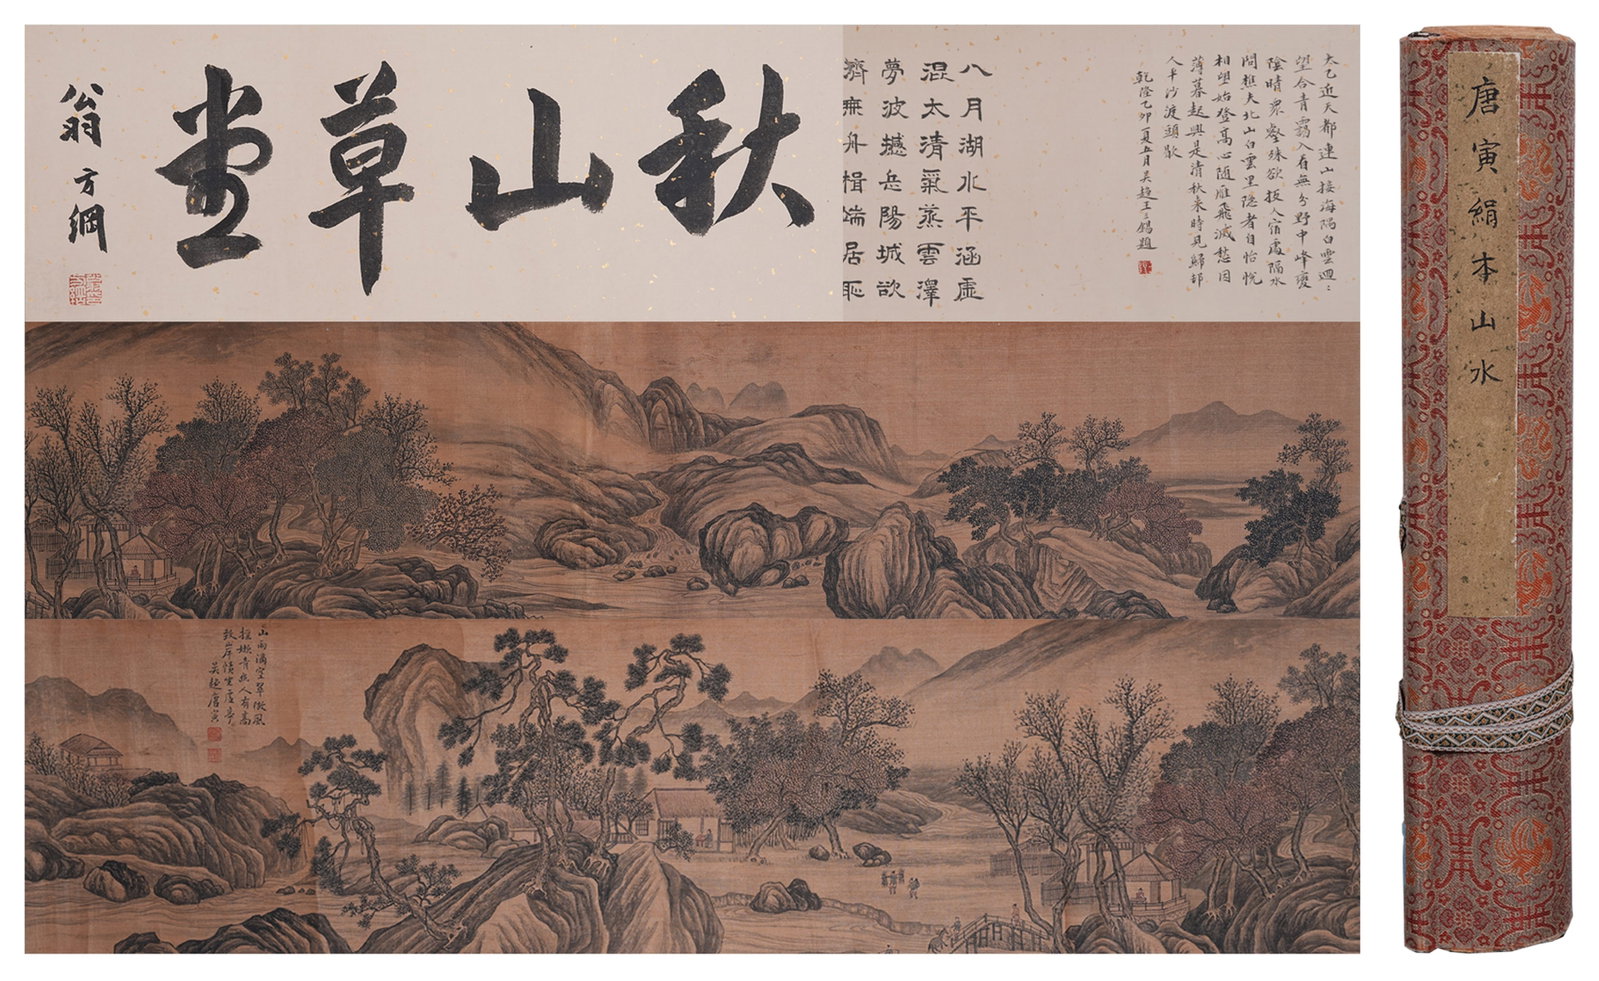 太乙近天都連山接海隅白雲迴〻
望合青靄入看無分野中峰變
陰晴衆壑殊欲投人宿處隔水
問樵夫北山白雲里隱者自怡悅
相望始登高心隨雁飛滅愁因
薄暮起興是清秋來時見歸邨
人平沙渡頭歇
乾隆乙卯夏五月吳趨王三錫題
八月湖水平涵虛
混太清氣蒸雲澤
夢波撼岳陽城欲
濟無舟楫端居恥
秋山草堂
翁方綱
山雨滴空翠微風
捲嫩青幽人有高
致岸幘坐虛亭
吳趨唐寅
唐寅絹本山水